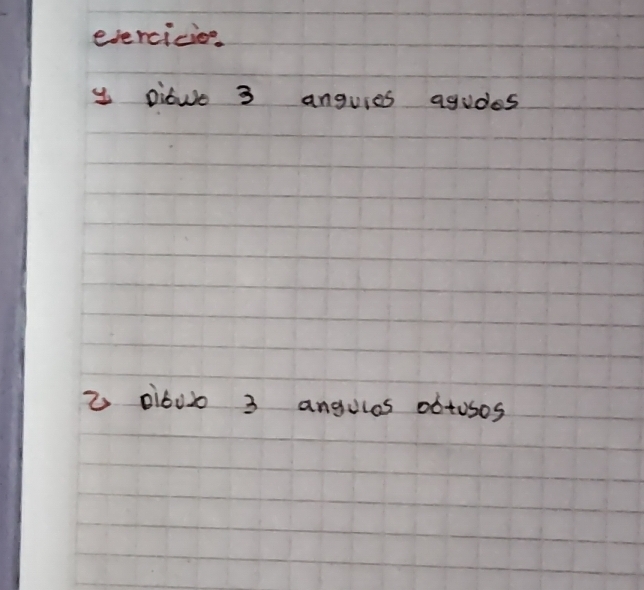 ejercicios.
1) Dibujo 3 angulos agudos
2) Dibujo 3 angulos obtusos